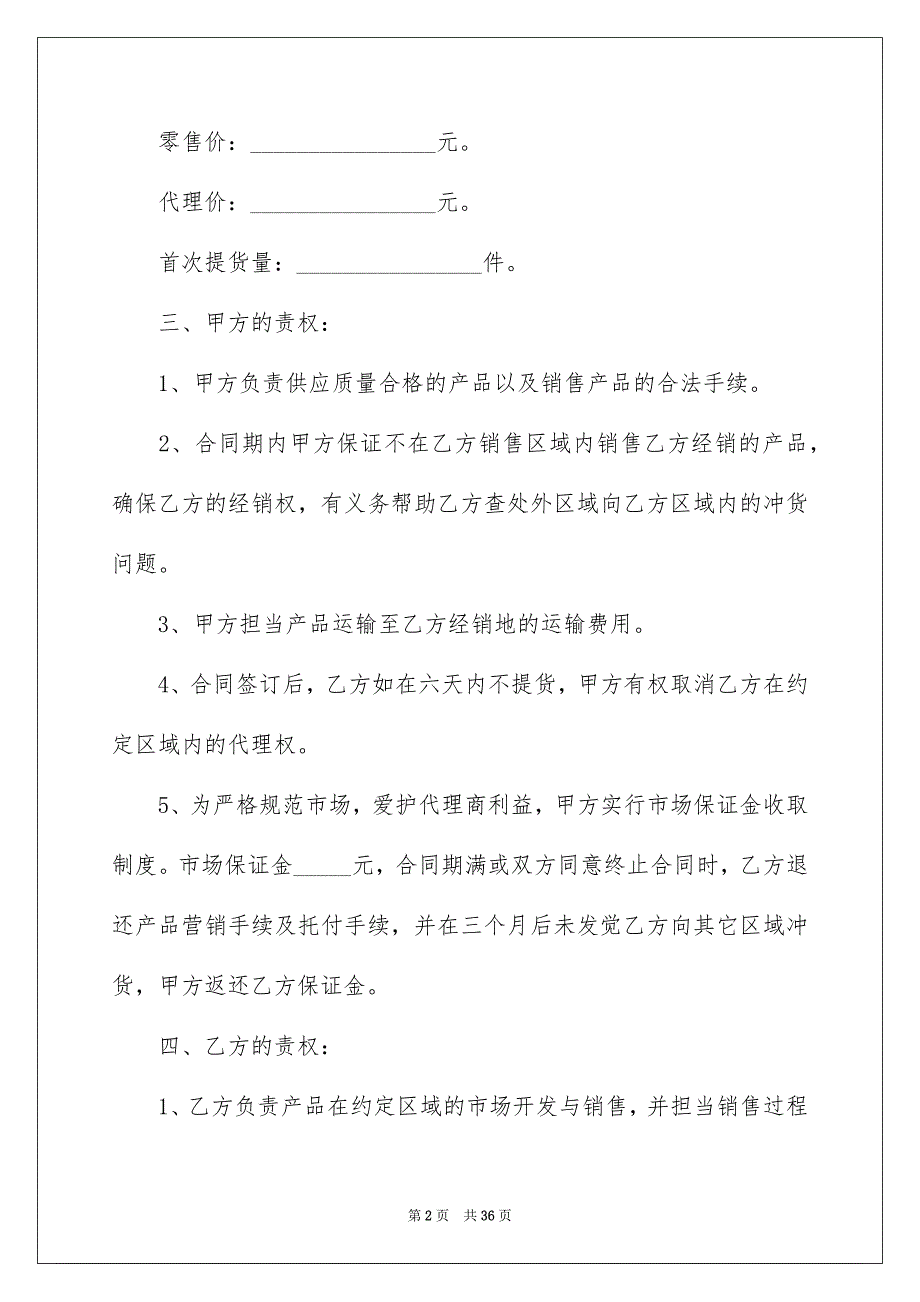 零售价：________________元。
代理价：________________元。
首次提货量：________________件。
三、甲方的责权：
1、甲方负责供应质量合格的产品以及销售产品的合法手续。
2、合同期内甲方保证不在乙方销售区域内销售乙方经销的产品，
确保乙方的经销权，有义务帮助乙方查处外区域向乙方区域内的冲货
问题。
3、甲方担当产品运输至乙方经销地的运输费用。
4、合同签订后，乙方如在六天内不提货，甲方有权取消乙方在约
定区域内的代理权。
5、为严格规范市场，爱护代理商利益，甲方实行市场保证金收取
制度。市场保证金_____元，合同期满或双方同意终止合同时，乙方退
还产品营销手续及托付手续，并在三个月后未发觉乙方向其它区域冲
货，甲方返还乙方保证金。
四、乙方的责权：
1、乙方负责产品在约定区域的市场开发与销售，并担当销售过程
第 2 页 共 36 页